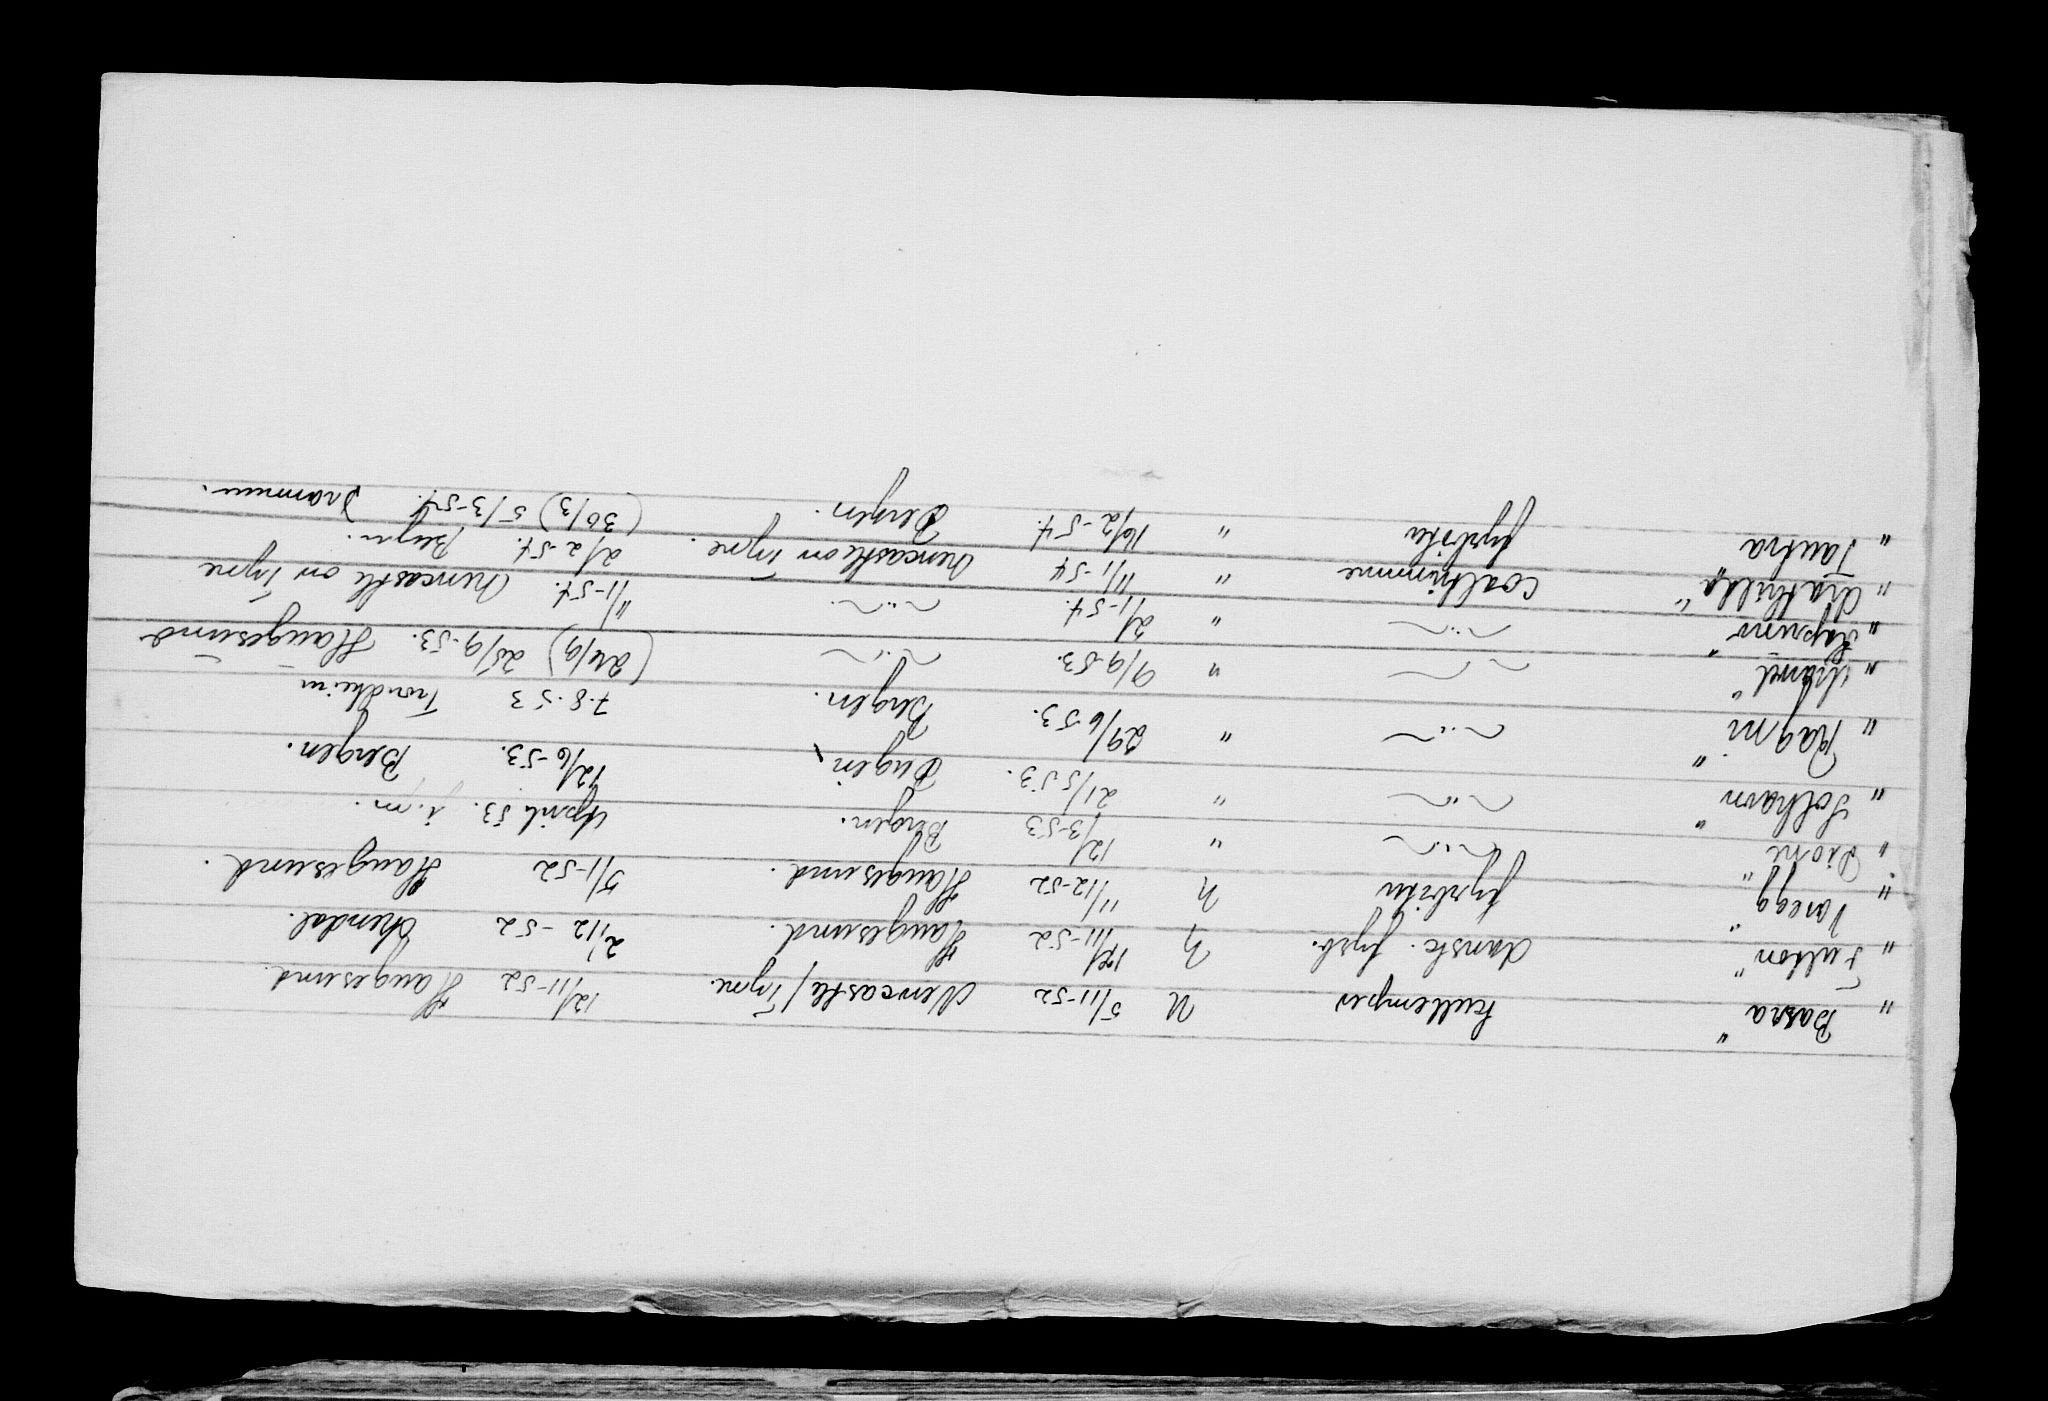 " Basra " kullemper N 5/11-52 Newcastle/Tyne. 12/11-52 Haugesund.
" Fulton " dansk. fyrb. N 12/11-52 Haugesund. 2/12-52
" Varegg " fyrbøter N 11/12-52 Haugesund. 5/1-52 Haugesund.
" Dione " —"— " 12/3-53 Bergen. April 53.
" Solhavn " —"— " 21/5 53. Bergen 12/6-53. Bergen.
" Ragni " —"— " 29/6 53. Bergen. 7.8.53 Trondheim
" " —"— " 9/9.53. —"— (24/9) 25/9-53. Haugesund
" " —"— " 2/1-54. —"— 11/1-54. Newcastle on Tyne
" " coaltrimmer " 11/1-54 Newcastle on Tyne. 2/2-54. Bergen.
" Tautra fyrbøter " 16/2-54. Bergen. (30/3) 5/3-54. Drammen.